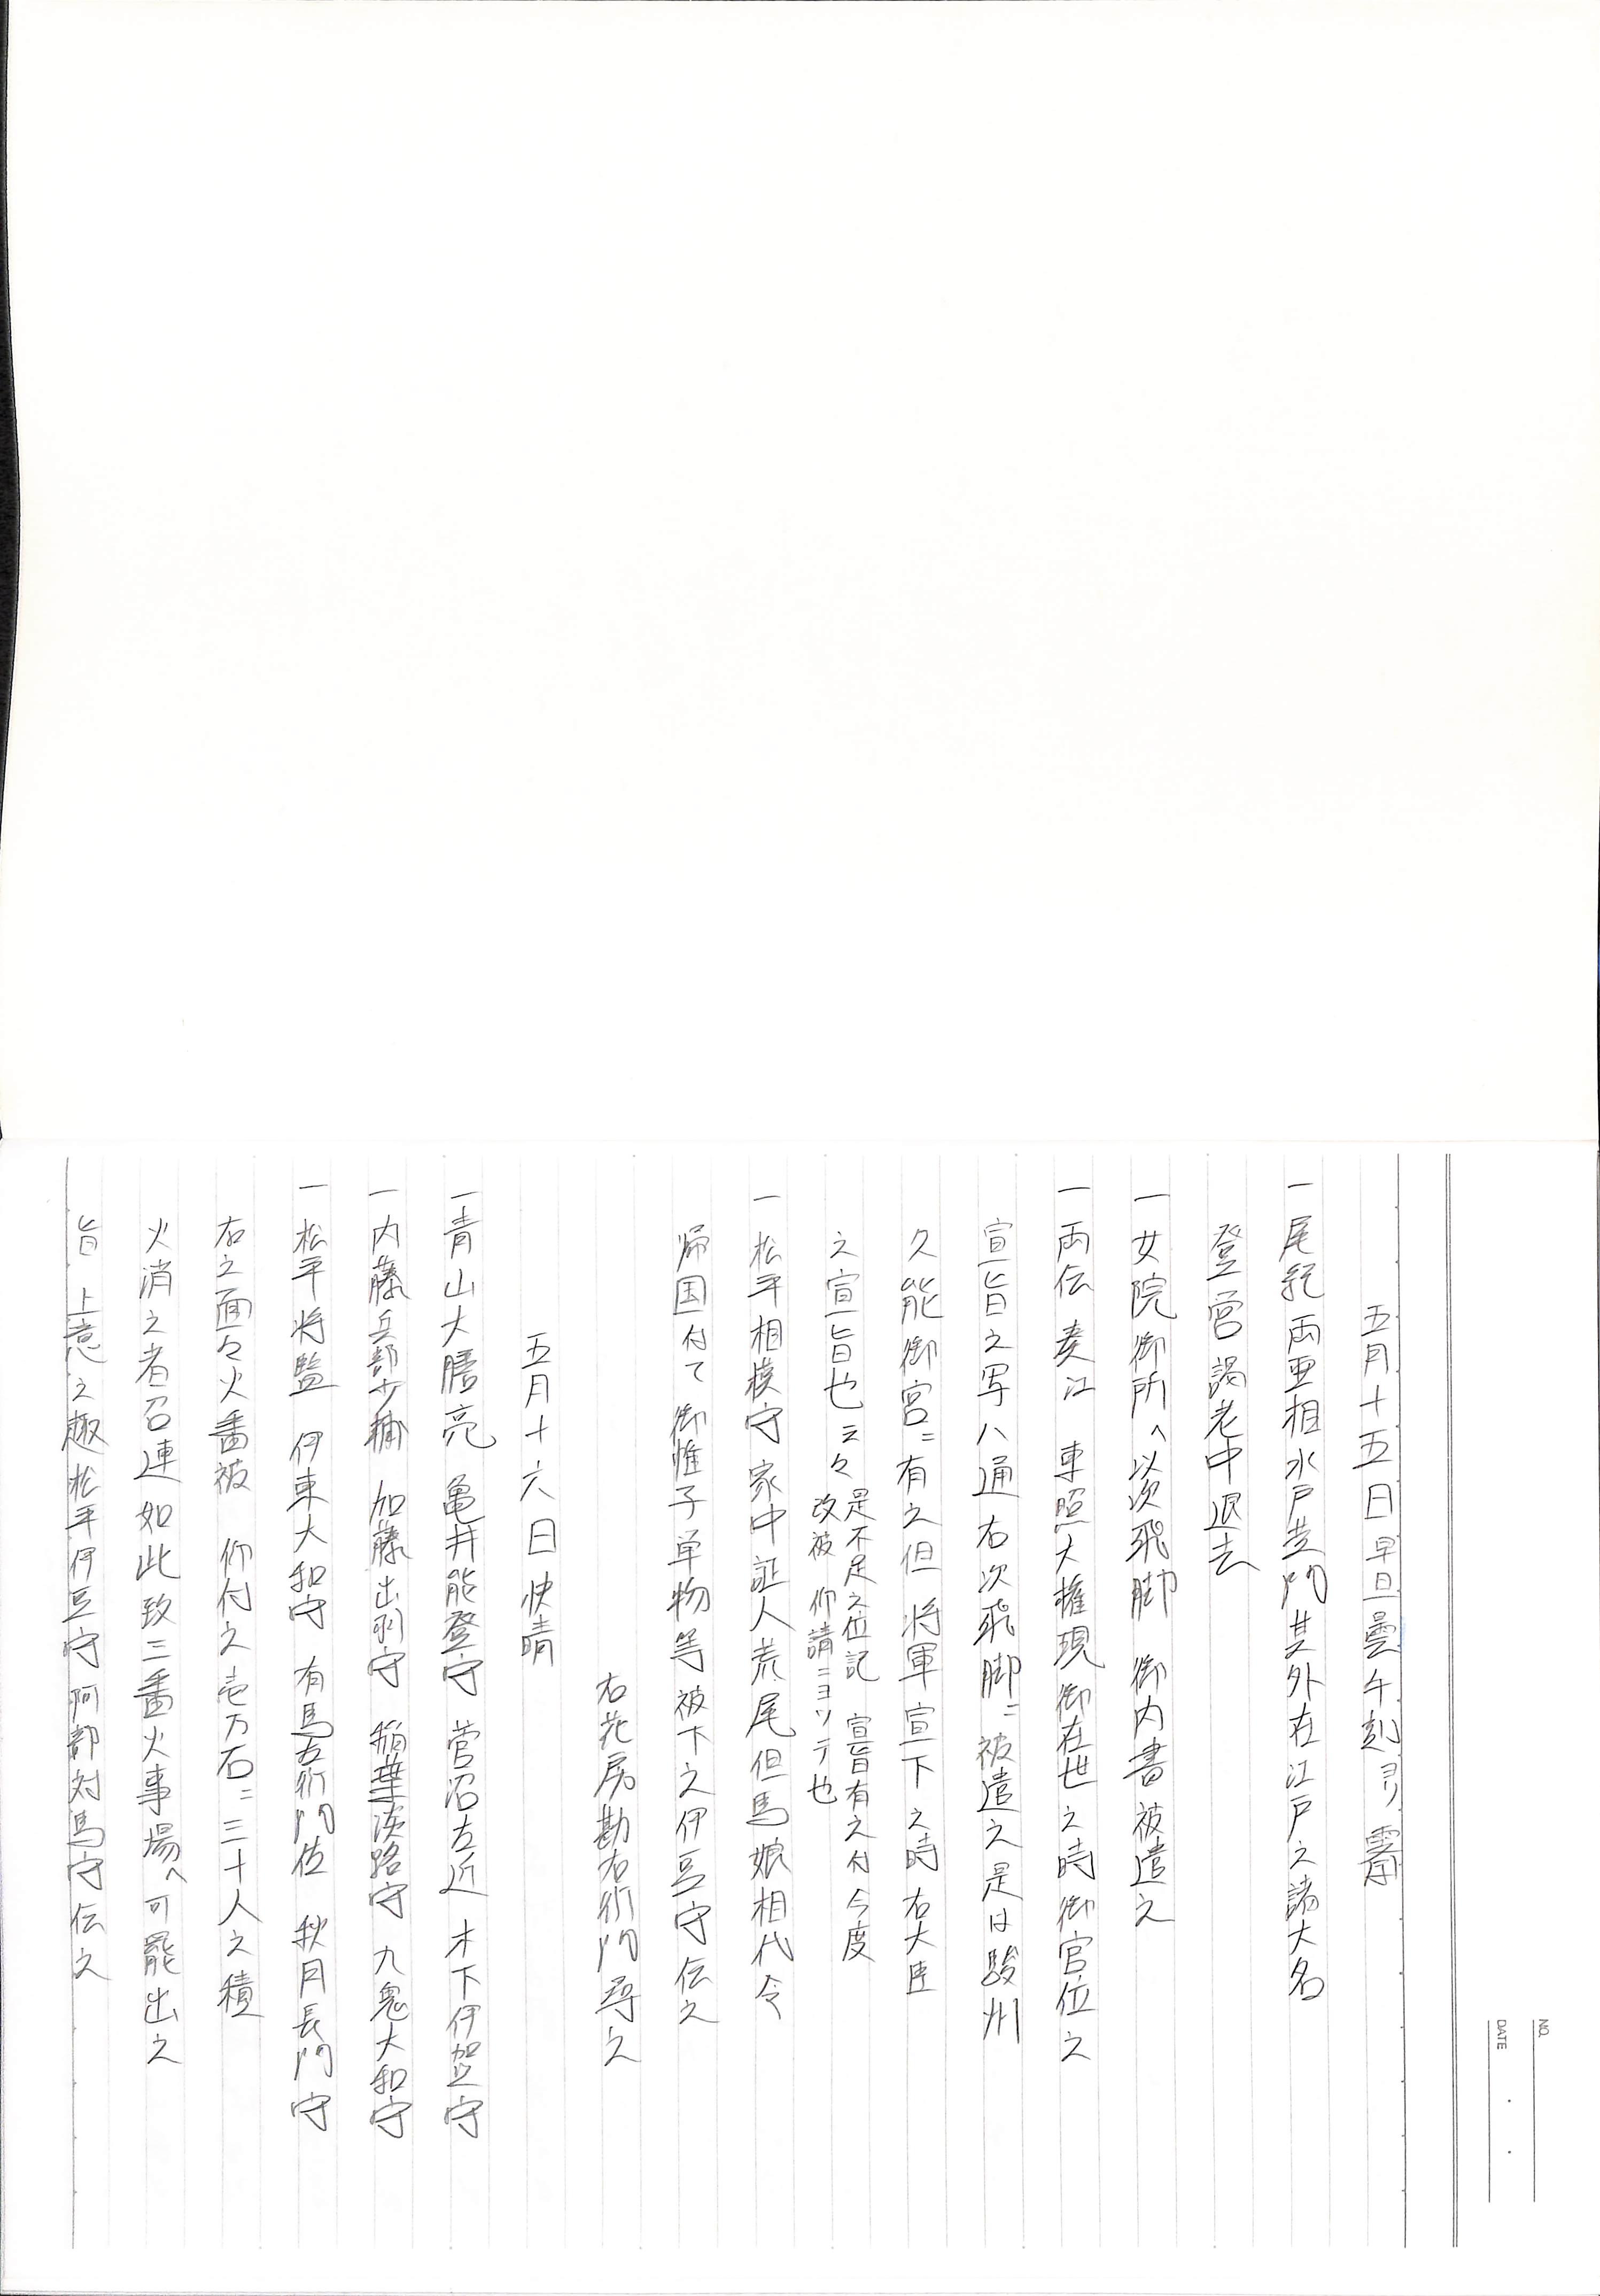 五月十五日早旦曇午刻ヨリ霽
一尾紀両亜相水戸黄門其外在江戸之諸大名
登営謁老中退去
一女院御所へ以次飛脚 御内書被遣之
一両伝奏江 東照大権現御在世之時御官位之
宣旨之写八通右次飛脚ニ被遣之是は駿州
久能御宮ニ有之但 将軍宣下之時 右大臣
之宣旨也云々 是不足之位記 宣旨有之付今度
改被 仰請ニヨツテ也
一松平相模守家中証人荒尾但馬娘相代令
帰国付て御帷子単物等被下之伊豆守伝之
右花房勘右衛門尋之
五月十六日快晴
一青山大膳亮 亀井能登守 菅沼左近 木下伊賀守
一内藤兵部少輔 加藤出羽守 稲葉淡路守 九鬼大和守
一松平将監 伊東大和守 有馬左衛門佐 秋月長門守
右之面々火番被 仰付之壱万石ニ三十人之積
火消之者召連如此致三番火事場へ可罷出之
旨 上意之趣松平伊豆守阿部対馬守伝之
NO.
DATE ・ ・